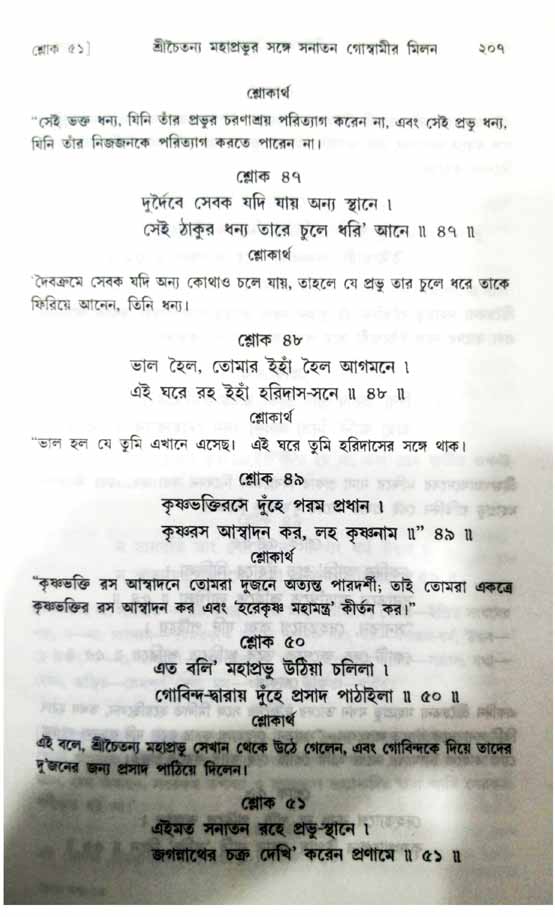 শ্লোক ৫১] শ্রীচৈতন্য মহাপ্রভুর সঙ্গে সনাতন গোস্বামীর মিলন ২০৭
শ্লোকার্থ
"সেই ভক্ত ধন্য, যিনি তাঁর প্রভুর চরণাশ্রয় পরিত্যাগ করেন না, এবং সেই প্রভু ধন্য,
যিনি তাঁর নিজজনকে পরিত্যাগ করতে পারেন না।
শ্লোক ৪৭
দুর্দৈবে সেবক যদি যায় অন্য স্থানে ।
সেই ঠাকুর ধন্য তারে চুলে ধরি' আনে ॥ ৪৭ ॥
শ্লোকার্থ
'দৈবক্রমে সেবক যদি অন্য কোথাও চলে যায়, তাহলে যে প্রভু তার চুলে ধরে তাকে
ফিরিয়ে আনেন, তিনি ধন্য।
শ্লোক ৪৮
ভাল হৈল, তোমার ইহাঁ হৈল আগমনে ।
এই ঘরে রহ ইহাঁ হরিদাস-সনে ॥ ৪৮ ॥
শ্লোকার্থ
"ভাল হল যে তুমি এখানে এসেছ। এই ঘরে তুমি হরিদাসের সঙ্গে থাক।
শ্লোক ৪৯
কৃষ্ণভক্তিরসে দুঁহে পরম প্রধান ।
কৃষ্ণরস আস্বাদন কর, লহ কৃষ্ণনাম ॥" ৪৯ ॥
শ্লোকার্থ
"কৃষ্ণভক্তি রস আস্বাদনে তোমরা দুজনে অত্যন্ত পারদর্শী; তাই তোমরা একত্রে
কৃষ্ণভক্তির রস আস্বাদন কর এবং 'হরেকৃষ্ণ মহামন্ত্র' কীর্তন কর।"
শ্লোক ৫০
এত বলি' মহাপ্রভু উঠিয়া চলিলা ।
গোবিন্দ-দ্বারায় দুঁহে প্রসাদ পাঠাইলা ॥ ৫০ ॥
শ্লোকার্থ
এই বলে, শ্রীচৈতন্য মহাপ্রভু সেখান থেকে উঠে গেলেন, এবং গোবিন্দকে দিয়ে তাদের
দু'জনের জন্য প্রসাদ পাঠিয়ে দিলেন।
শ্লোক ৫১
এইমত সনাতন রহে প্রভু-স্থানে ।
জগন্নাথের চক্র দেখি' করেন প্রণামে ॥ ৫১ ॥